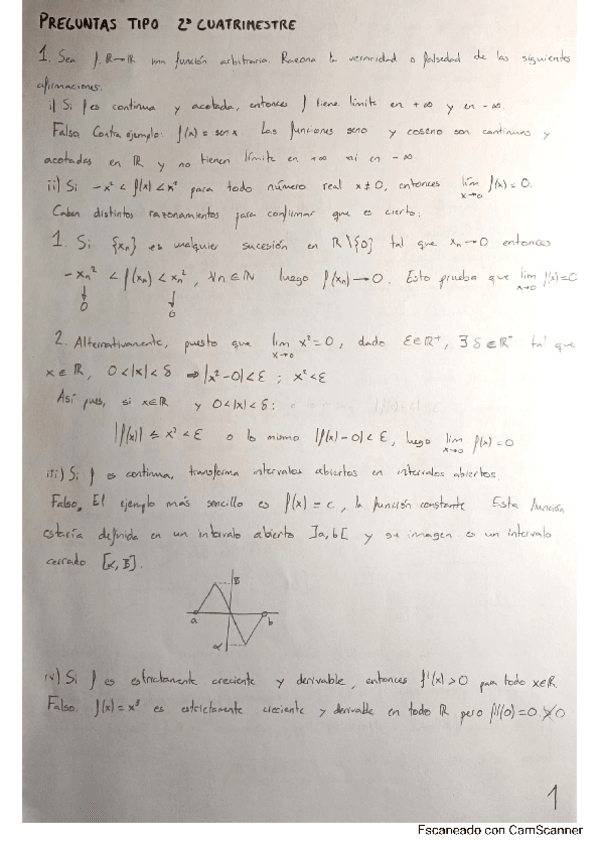 PREGUNTAS TIPO 2º CUATRIMESTRE
1. Sea f: ℝ→ℝ una función arbitraria. Razona la veracidad o falsedad de las siguientes
afirmaciones:
i) Si f es continua y acotada, entonces f tiene límite en +∞ y en -∞.
Falso. Contraejemplo: f(x) = sen x Las funciones seno y coseno son continuas y
acotadas en ℝ y no tienen límite en +∞ ni en -∞
ii) Si -x² < f(x) < x² para todo número real x≠0, entonces lim x→0 f(x) = 0.
Caben distintos razonamientos para confirmar que es cierto:
1. Si {xn} es cualquier sucesión en ℝ\{0} tal que xn→0 entonces
-xn² < f(xn) < xn², ∀n∈ℕ luego f(xn)→0. Esto prueba que lim x→0 f(x)=0
↓ ↓
0 0
2. Alternativamente, puesto que lim x→0 x²=0, dado ε∈ℝ⁺, ∃ δ∈ℝ⁺ tal que
x∈ℝ, 0<|x|<δ ⇒ |x²-0|<ε ; x²<ε
Así pues, si x∈ℝ y 0<|x|<δ:
|f(x)| ≤ x² < ε o lo mismo |f(x)-0|<ε, luego lim x→0 f(x)=0
iii) Si f es continua, transforma intervalos abiertos en intervalos abiertos.
Falso. El ejemplo más sencillo es f(x) = c, la función constante Esta función
estaría definida en un intervalo abierto ]a,b[ y su imagen es un intervalo
cerrado [α, β].
β
a b
α
iv) Si f es estrictamente creciente y derivable, entonces f'(x)>0 para todo x∈ℝ.
Falso. f(x)=x³ es estrictamente creciente y derivable en todo ℝ pero f'(0)=0 ≯ 0
1
Escaneado con CamScanner